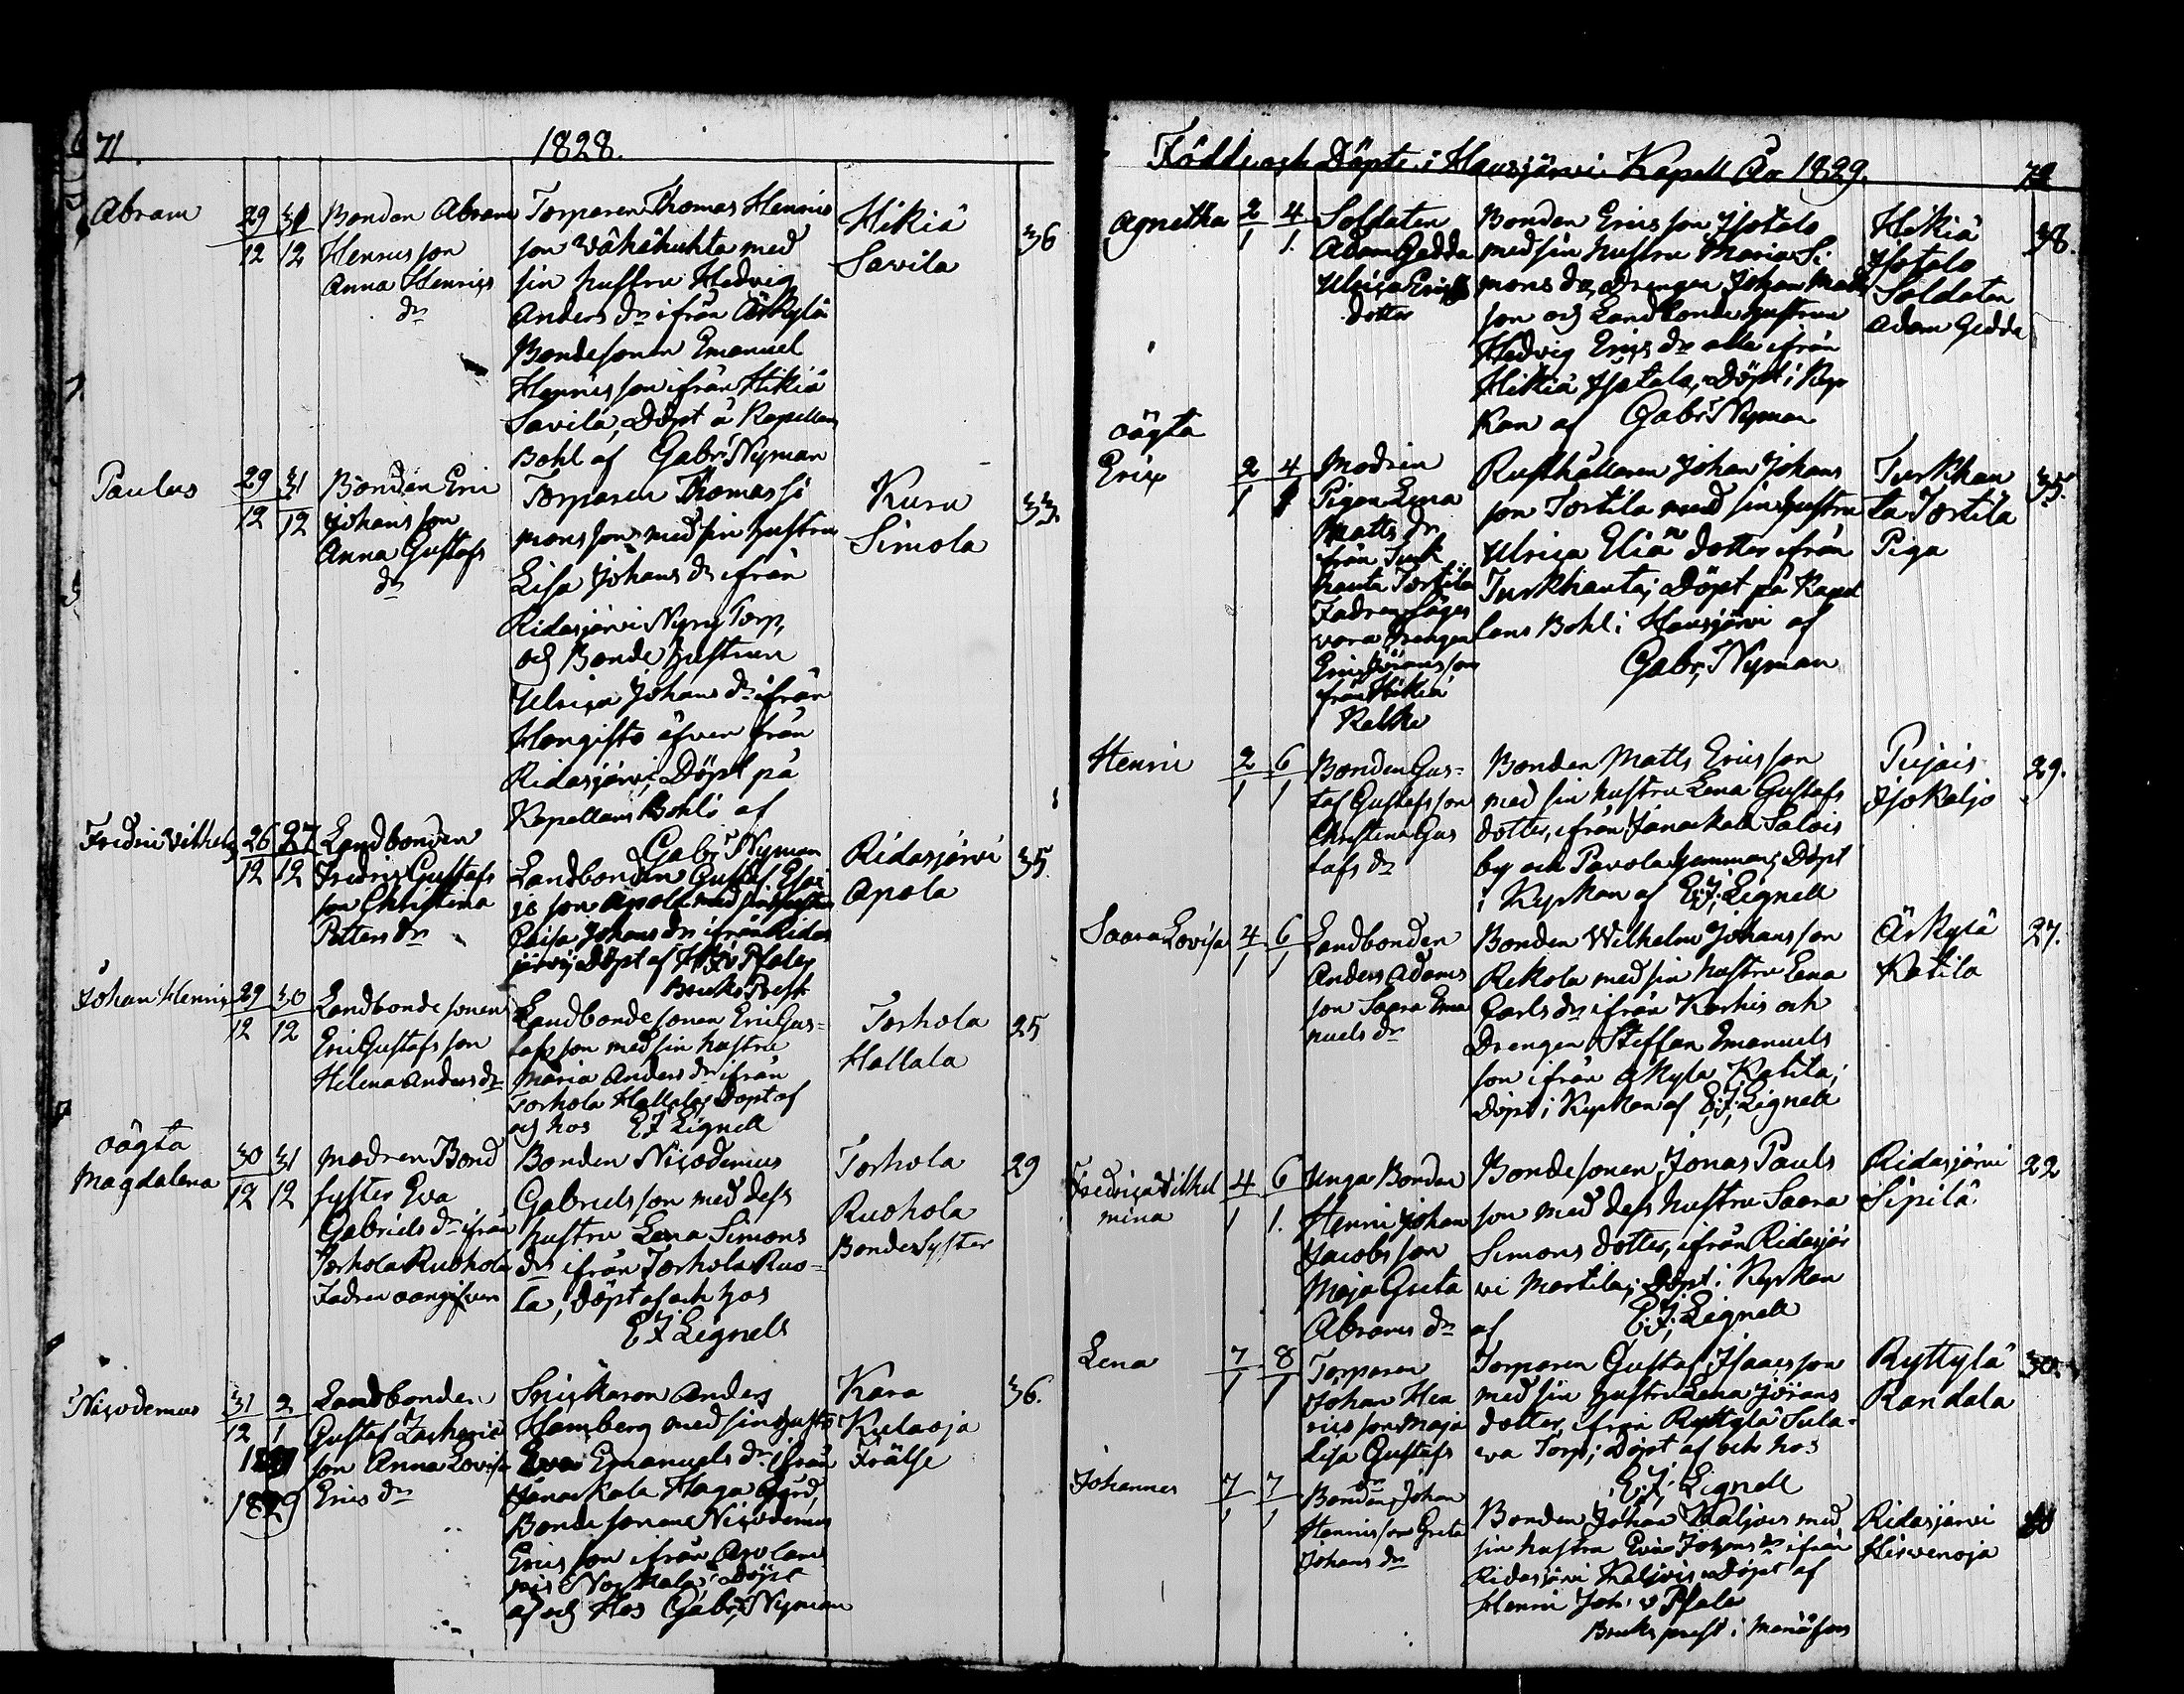 71. 1828.
Abram 29/12 31/12
Bonden Abram
Henricsson
Anna Henrics
dr
Torparen Thomas Henrics
son Vähähuhta med
sin hustru Hedvig
Anders dr ifrån Ärkylä
Bondesonen Emanuel
Henricsson ifrån Hikiä
Savila, Döpt å Kapellans
Bohl af Gabr: Nyman
Hikiä
Savila
36
Paulus 29/12 31/12
Bonden Eric
Johansson
Anna Gustafs
dr
Torparen Thomas Si
monsson med sin hustru
Lisa Johans dr ifrån
Ridasjärvi Nyry Torp,
och Bonde hustrun
Ulrica Johans dr ifrån
Hongisto äfven från
Ridasjärvi, Döpt på
Kapellans Bohl af
Gabr: Nyman
Kuru
Simola
33.
Fredric Vilhelm 26/12 27/12
Landbonden
Fredric Gustafs
son Christina
Petters dr
Landbonden Gustaf Esai
æ son Apola med sin hustru
Caisa Johans dr ifrån Ridas
järvi, Döpt af
Bruks Prest
Ridasjärvi
Apola
35.
Johan Henric 29/12 30/12
Landbondesonen
Eric Gustafsson
Helena Anders dr
Landbondesonen Eric Gus-
tafsson med sin hustru
Maria Anders dr ifrån
Torhola Hallala, Döpt af
och hos E J Lignell
Torhola
Hallala
25
oägta
Magdalena 30/12 31/12
Modren Bond
syster Eva
Gabriels dr ifrån
Torhola Ruohola
Fadren oangifven
Bonden Nicodemus
Gabrielsson med dess
hustru Lena Simons
dr ifrån Torhola Ruo-
la, döpt af och hos
E J Lignell
Torhola
Ruohola
Bondesyster
29
Nicodemus 31/12 2/1
1829
Landbonden
Gustaf Zacharie
son Anna Lovisa
Erics dr
Snickaren Anders
Hamberg med sin hustru
Eva Emanuels dr ifrån
Janackala Haga Gård,
Bondesonen Nicodemus
Ericsson ifrån
Döpt
af och Hos Gabr: Nyman
Kara
Kulaoja
Frälse
36.
Födde och Döpte i Hausjärvi Kapell År 1829. 72
Agnetha 2/1 4/1.
Soldaten
Adam Gedda
Ulrica Erics
dotter
Bonden Ericsson Isotalo
med sin hustru Maria Si
mons dr, Drengen Johan Mats
son och Landbonde hustrun
Hedvig Erics dr alla ifrån
Hikiä Isotalo, Döpt i Kyr
kan af Gabr: Nyman
Hikiä
Isotalo
Soldaten
Adam Gedda
38.
oägta
Eric 2/1 4/1
Modren
Pigan Lena
Matts dr
från Turk
hauta Torttila
Fadren säges
vara Drengen
Eric Göransson
från Hikiä
Kelho
Rusthållaren Johan Johans
son Torttila med sin hustru
Ulrica Eliæ dotter ifrån
Turkhauta; Döpt på Kapel
lans Bohl i Hausjärvi af
Gabr: Nyman
Turkhau
ta Torttila
Piga
35.
Henric 2/1 6/1
Bonden Gus-
taf Gustafsson
Christina Gus
tafs dr
Bonden Matts Ericsson
med sin hustru Lena Gustafs
dotter, ifrån Janackala Salois
by och Pavola hemman; Döpt
i Kyrkan af E; J; Lignell
Pujais
Isokaljo
29.
Saara Lovisa 4/1 6/1
Landbonden
Anders Adams
son Saara Ema
nuels dr
Bonden Wilhelm Johansson
Rekola med sin hustru Lena
Carls dr ifrån Karhis och
Drengen Steffan Emanuels
son ifrån Ärkylä Katila;
döpt i Kyrkan af E; J; Lignell
Ärkylä
Katila
27.
Fredrica Vilhel
mina 4/1 6/1.
Unga Bonden
Henric Johan
Jacobsson
Maja Greta
Abrams dr
Bondesonen Jonas Pauls
son med dess hustru Saara
Simons dotter, ifrån Ridasjär
vi Martila; Döpt i Kyrkan
af E; J; Lignell
Ridasjärvi
Sipilä
22
Lena 7/1 8/1
Torparen
Johan Hen
ricsson Maja
Lisa Gustafs
dr
Torparen Gustaf Isaacsson
med sin hustru Lena Jörans
dotter, ifrån Ryttylä Sula-
va Torp; Döpt af och hos
E; J; Lignell
Ryttylä
Randala
30.
Johannes 7/1 7/1
Bonden Johan
Henricsson Greta
Johans dr
Bonden Johan Kaljois med
sin hustru Eva Johans dr ifrån
Ridasjärvi Kaljois Döpt af
Henric Joh: v Pfaler
Bruks prest i Mariæfors
Ridasjärvi
Hirvenoja